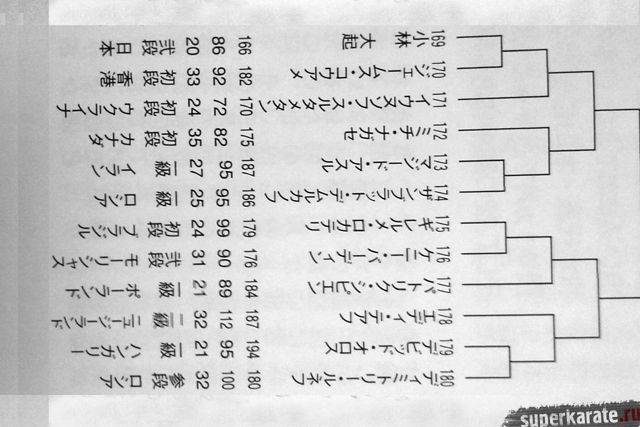 169 小林 大起 166 86 20 弐段 日本
170 ジェームス・コウアメ 182 92 33 初段 香港
171 170 72 24 初段 ウクライナ
172 ミチ・ナガセ 175 82 35 初段 カナダ
173 マジード・アスル 187 95 27 一級 イラン
174 186 95 25 一級 ロシア
175 ギレルメ・ロカテリ 179 99 24 初段 ブラジル
176 ケニー・バーディン 176 90 31 弐段 モーリシャス
177 パトリク・シピエン 184 89 21 一級 ポーランド
178 エディ・テアフ 187 112 32 一級 ニュージーランド
179 デビッド・オロス 194 95 21 一級 ハンガリー
180 ディミトリー・ルネフ 180 100 32 参段 ロシア
superkarate.ru